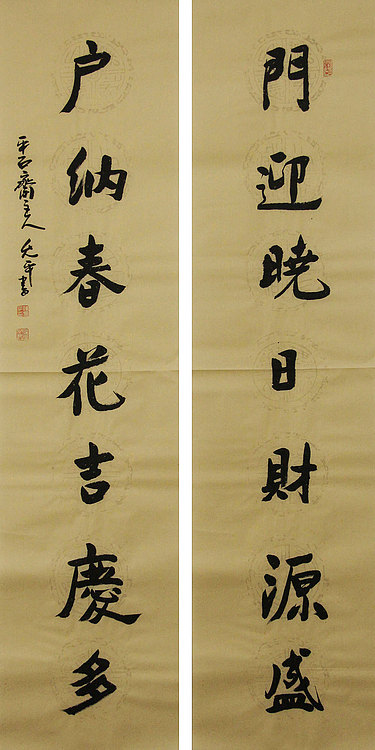 門迎曉日財源盛
户納春花吉慶多
平石齋主人允平書